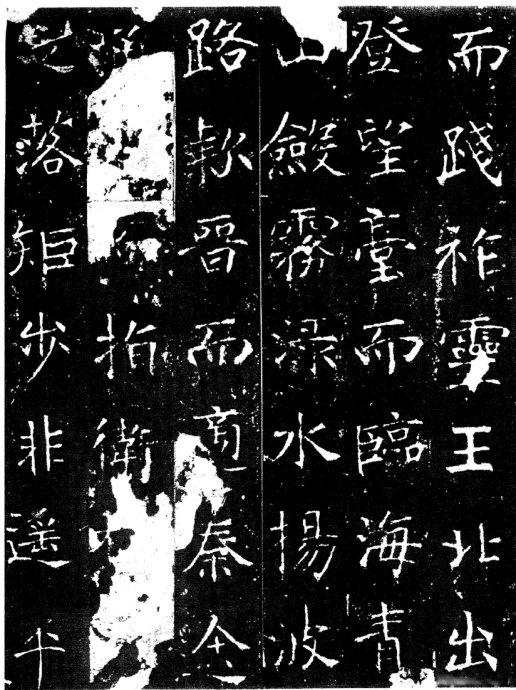 而踐祚靈王北出
登望臺而臨海青
山斂霧淥水揚波
路款晉而適秦
指衛
之落矩步非遥平